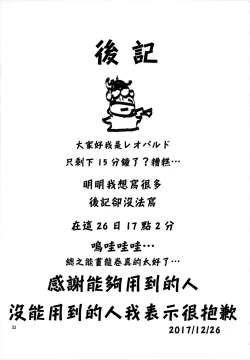 後記
大家好我是レオパルド
只剩下15分鐘了？糟糕…
明明我想寫很多
後記卻沒法寫
在這26日17點2分
嗚哇哇哇…
總之能畫龍卷真的太好了…
感謝能夠用到的人
沒能用到的人我表示很抱歉
2017/12/26